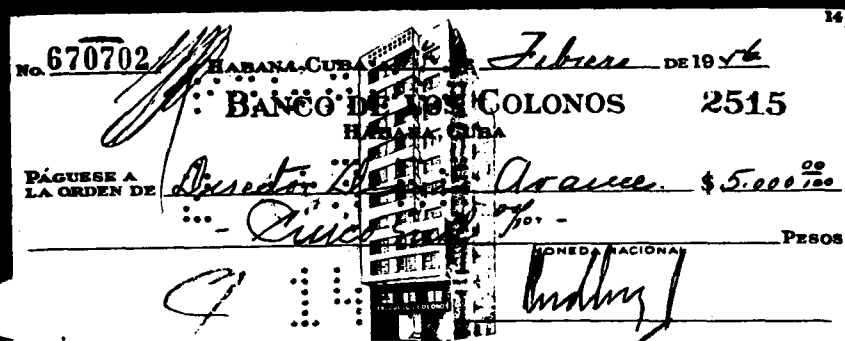 14
No. 670702 HABANA, CUBA Febrero DE 1956
BANCO DE LOS COLONOS 2515
HABANA, CUBA
PÁGUESE A LA ORDEN DE Director Avance $ 5.000 00/100
- Cinco mil -
PESOS
MONEDA NACIONAL
14